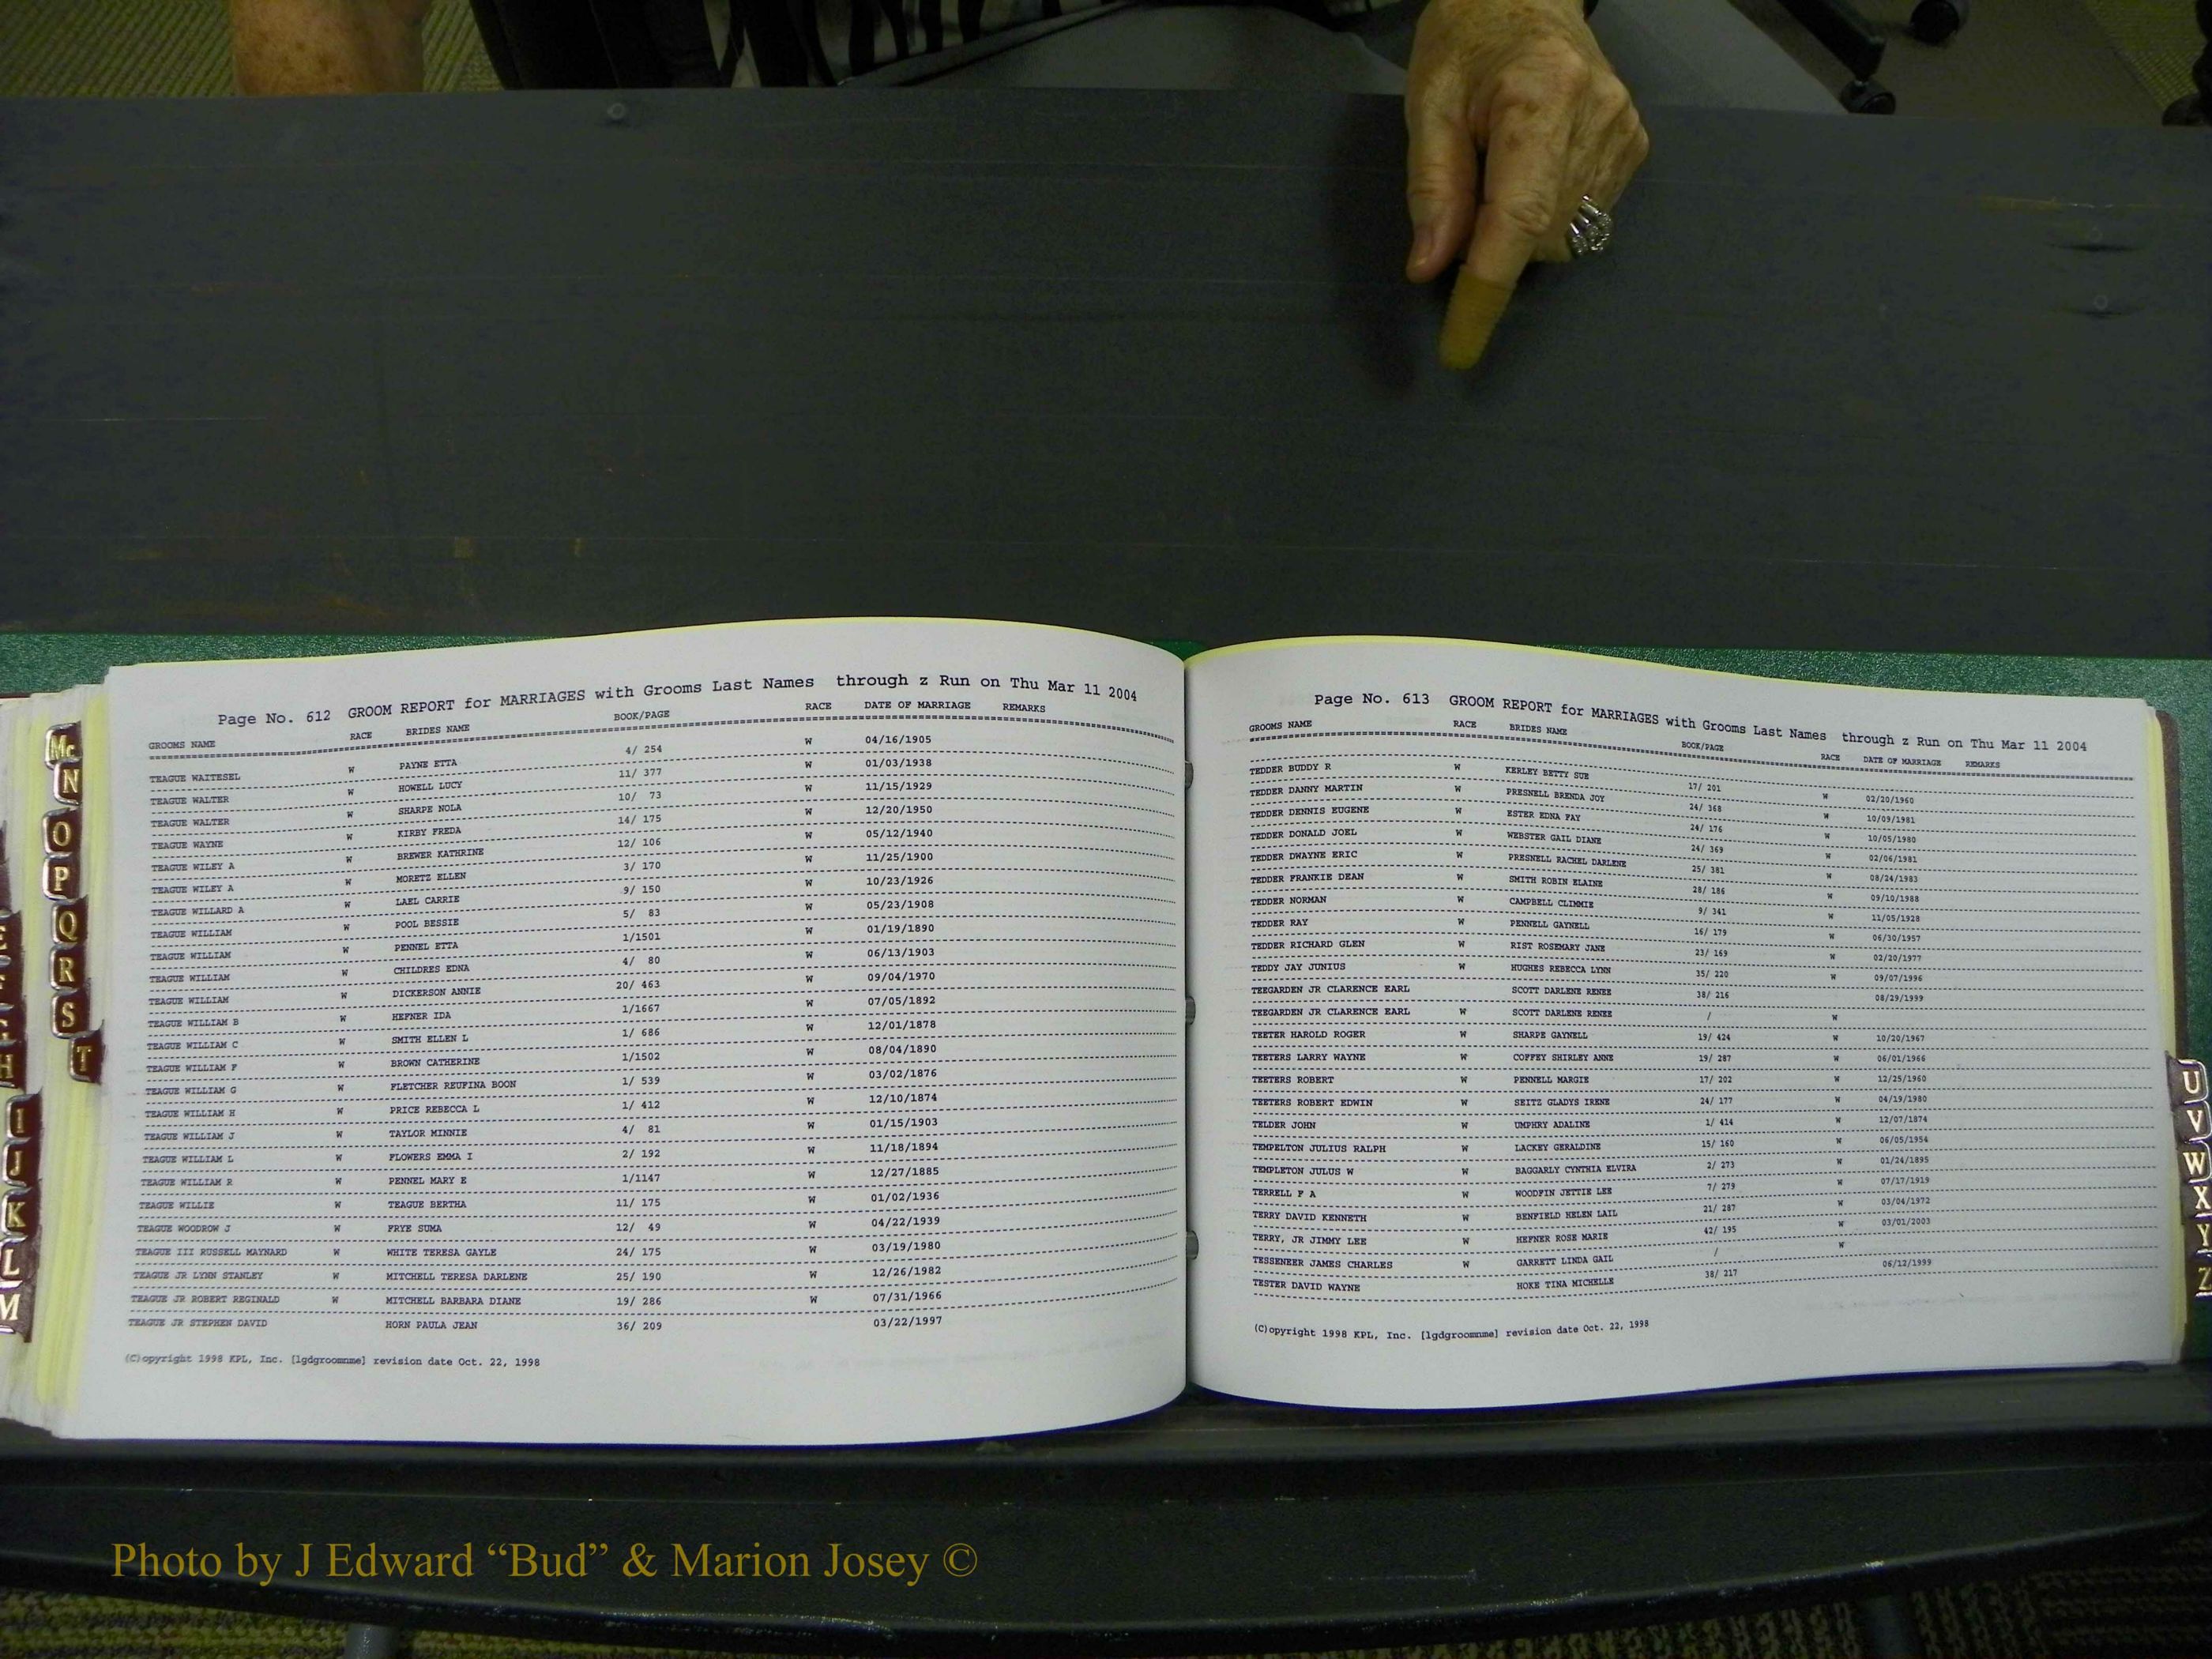 Page No. 612 GROOM REPORT for MARRIAGES with Grooms Last Names through z Run on Thu Mar 11 2004
GROOMS NAME RACE BRIDES NAME BOOK/PAGE RACE DATE OF MARRIAGE REMARKS
TEAGUE WAITESEL W PAYNE ETTA 4/ 254 W 04/16/1905
TEAGUE WALTER W HOWELL LUCY 11/ 377 W 01/03/1938
TEAGUE WALTER W SHARPE NOLA 10/ 73 W 11/15/1929
TEAGUE WAYNE W KIRBY FREDA 14/ 175 W 12/20/1950
TEAGUE WILEY A W BREWER KATHRINE 12/ 106 W 05/12/1940
TEAGUE WILEY A W MORETZ ELLEN 3/ 170 W 11/25/1900
TEAGUE WILLARD A W LAEL CARRIE 9/ 150 W 10/23/1926
TEAGUE WILLIAM W POOL BESSIE 5/ 83 W 05/23/1908
TEAGUE WILLIAM W PENNEL ETTA 1/1501 W 01/19/1890
TEAGUE WILLIAM W CHILDRES EDNA 4/ 80 W 06/13/1903
TEAGUE WILLIAM W DICKERSON ANNIE 20/ 463 W 09/04/1970
TEAGUE WILLIAM B W HEFNER IDA 1/1667 W 07/05/1892
TEAGUE WILLIAM C W SMITH ELLEN L 1/ 686 W 12/01/1878
TEAGUE WILLIAM F W BROWN CATHERINE 1/1502 W 08/04/1890
TEAGUE WILLIAM G W FLETCHER REUFINA BOON 1/ 539 W 03/02/1876
TEAGUE WILLIAM H W PRICE REBECCA L 1/ 412 W 12/10/1874
TEAGUE WILLIAM J W TAYLOR MINNIE 4/ 81 W 01/15/1903
TEAGUE WILLIAM L W FLOWERS EMMA I 2/ 192 W 11/18/1894
TEAGUE WILLIAM R W PENNEL MARY E 1/1147 W 12/27/1885
TEAGUE WILLIE W TEAGUE BERTHA 11/ 175 W 01/02/1936
TEAGUE WOODROW J W FRYE SUMA 12/ 49 W 04/22/1939
TEAGUE III RUSSELL MAYNARD W WHITE TERESA GAYLE 24/ 175 W 03/19/1980
TEAGUE JR LYNN STANLEY W MITCHELL TERESA DARLENE 25/ 190 W 12/26/1982
TEAGUE JR ROBERT REGINALD W MITCHELL BARBARA DIANE 19/ 286 W 07/31/1966
TEAGUE JR STEPHEN DAVID HORN PAULA JEAN 36/ 209 03/22/1997
(C)opyright 1998 KPL, Inc. [lgdgroomnme] revision date Oct. 22, 1998
Page No. 613 GROOM REPORT for MARRIAGES with Grooms Last Names through z Run on Thu Mar 11 2004
GROOMS NAME RACE BRIDES NAME BOOK/PAGE RACE DATE OF MARRIAGE REMARKS
TEDDER BUDDY R W KERLEY BETTY SUE 17/ 201 W 02/20/1960
TEDDER DANNY MARTIN W PRESNELL BRENDA JOY 24/ 368 W 10/09/1981
TEDDER DENNIS EUGENE W ESTER EDNA FAY 24/ 176 W 10/05/1980
TEDDER DONALD JOEL W WEBSTER GAIL DIANE 24/ 369 W 02/06/1981
TEDDER DWAYNE ERIC W PRESNELL RACHEL DARLENE 25/ 381 W 08/24/1983
TEDDER FRANKIE DEAN W SMITH ROBIN ELAINE 28/ 186 W 09/10/1988
TEDDER NORMAN W CAMPBELL CLIMMIE 9/ 341 W 11/05/1928
TEDDER RAY W PENNELL GAYNELL 16/ 179 W 06/30/1957
TEDDER RICHARD GLEN W RIST ROSEMARY JANE 23/ 169 W 02/20/1977
TEDDY JAY JUNIUS W HUGHES REBECCA LYNN 35/ 220 W 09/07/1996
TEEGARDEN JR CLARENCE EARL SCOTT DARLENE RENEE 38/ 216 08/29/1999
TEEGARDEN JR CLARENCE EARL W SCOTT DARLENE RENEE / W
TEETER HAROLD ROGER W SHARPE GAYNELL 19/ 424 W 10/20/1967
TEETERS LARRY WAYNE W COFFEY SHIRLEY ANNE 19/ 287 W 06/01/1966
TEETERS ROBERT W PENNELL MARGIE 17/ 202 W 12/25/1960
TEETERS ROBERT EDWIN W SEITZ GLADYS IRENE 24/ 177 W 04/19/1980
TELDER JOHN W UMPHRY ADALINE 1/ 414 W 12/07/1874
TEMPELTON JULIUS RALPH W LACKEY GERALDINE 15/ 160 W 06/05/1954
TEMPLETON JULUS W W BAGGARLY CYNTHIA ELVIRA 2/ 273 W 01/24/1895
TERRELL F A W WOODFIN JETTIE LEE 7/ 279 W 07/17/1919
TERRY DAVID KENNETH W BENFIELD HELEN LAIL 21/ 287 W 03/04/1972
TERRY, JR JIMMY LEE W HEFNER ROSE MARIE 42/ 195 W 03/01/2003
TESSENEER JAMES CHARLES W GARRETT LINDA GAIL / W
TESTER DAVID WAYNE HOKE TINA MICHELLE 38/ 217 06/12/1999
(C)opyright 1998 KPL, Inc. [lgdgroomnme] revision date Oct. 22, 1998
Mc
N
O
P
Q
R
S
T
H
I
J
K
L
M
U
V
W
X
Y
Z
Photo by J Edward “Bud” & Marion Josey ©